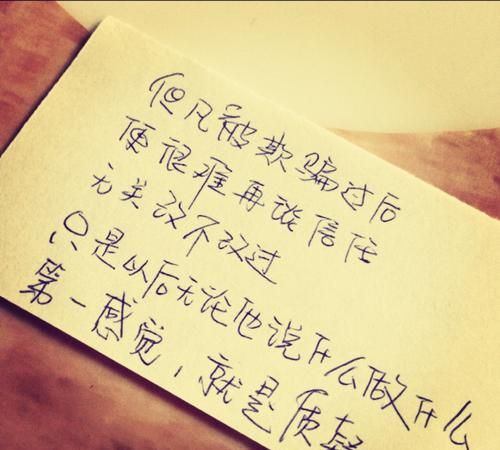 但凡被欺骗过后
便很难再谈信任
无关改不改过
只是以后无论他说什么做什么
第一感觉，就是质疑